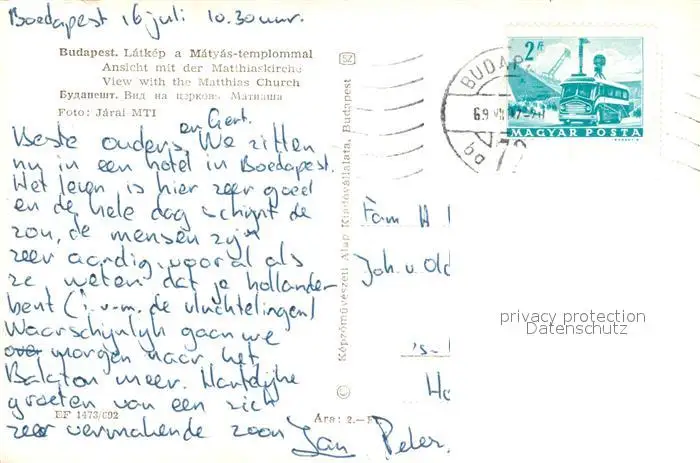 Boedapest 16 juli 10.30 uur.
Budapest. Látkép a Mátyás-templommal
Ansicht mit der Matthiaskirche
View with the Matthias Church
Будапешт. Вид на церковь Матиаша
Foto: Járai-MTI
en Gert.
Beste ouders, We zitten
nu in een hotel in Boedapest.
Het leven is hier zeer goed
en de hele dag schijnt de
zon, de mensen zijn
zeer aardig, vooral als
ze weten dat je hollander
bent (i.v.m. de vluchtelingen)
Waarschijnlijk gaan we
morgen naar het
Balaton meer. Hartelijke
groeten van een zich
zeer vermakende zoon Jan Peter.
EF 1473/692
Ára: 2.— Ft.
Képzőművészeti Alap Kiadóvállalata, Budapest
SZ
BUDAP
69 VII 17
72
2 Ft
MAGYAR POSTA
Fam H
Joh. v. Old
's-
Ha
privacy protection
Datenschutz